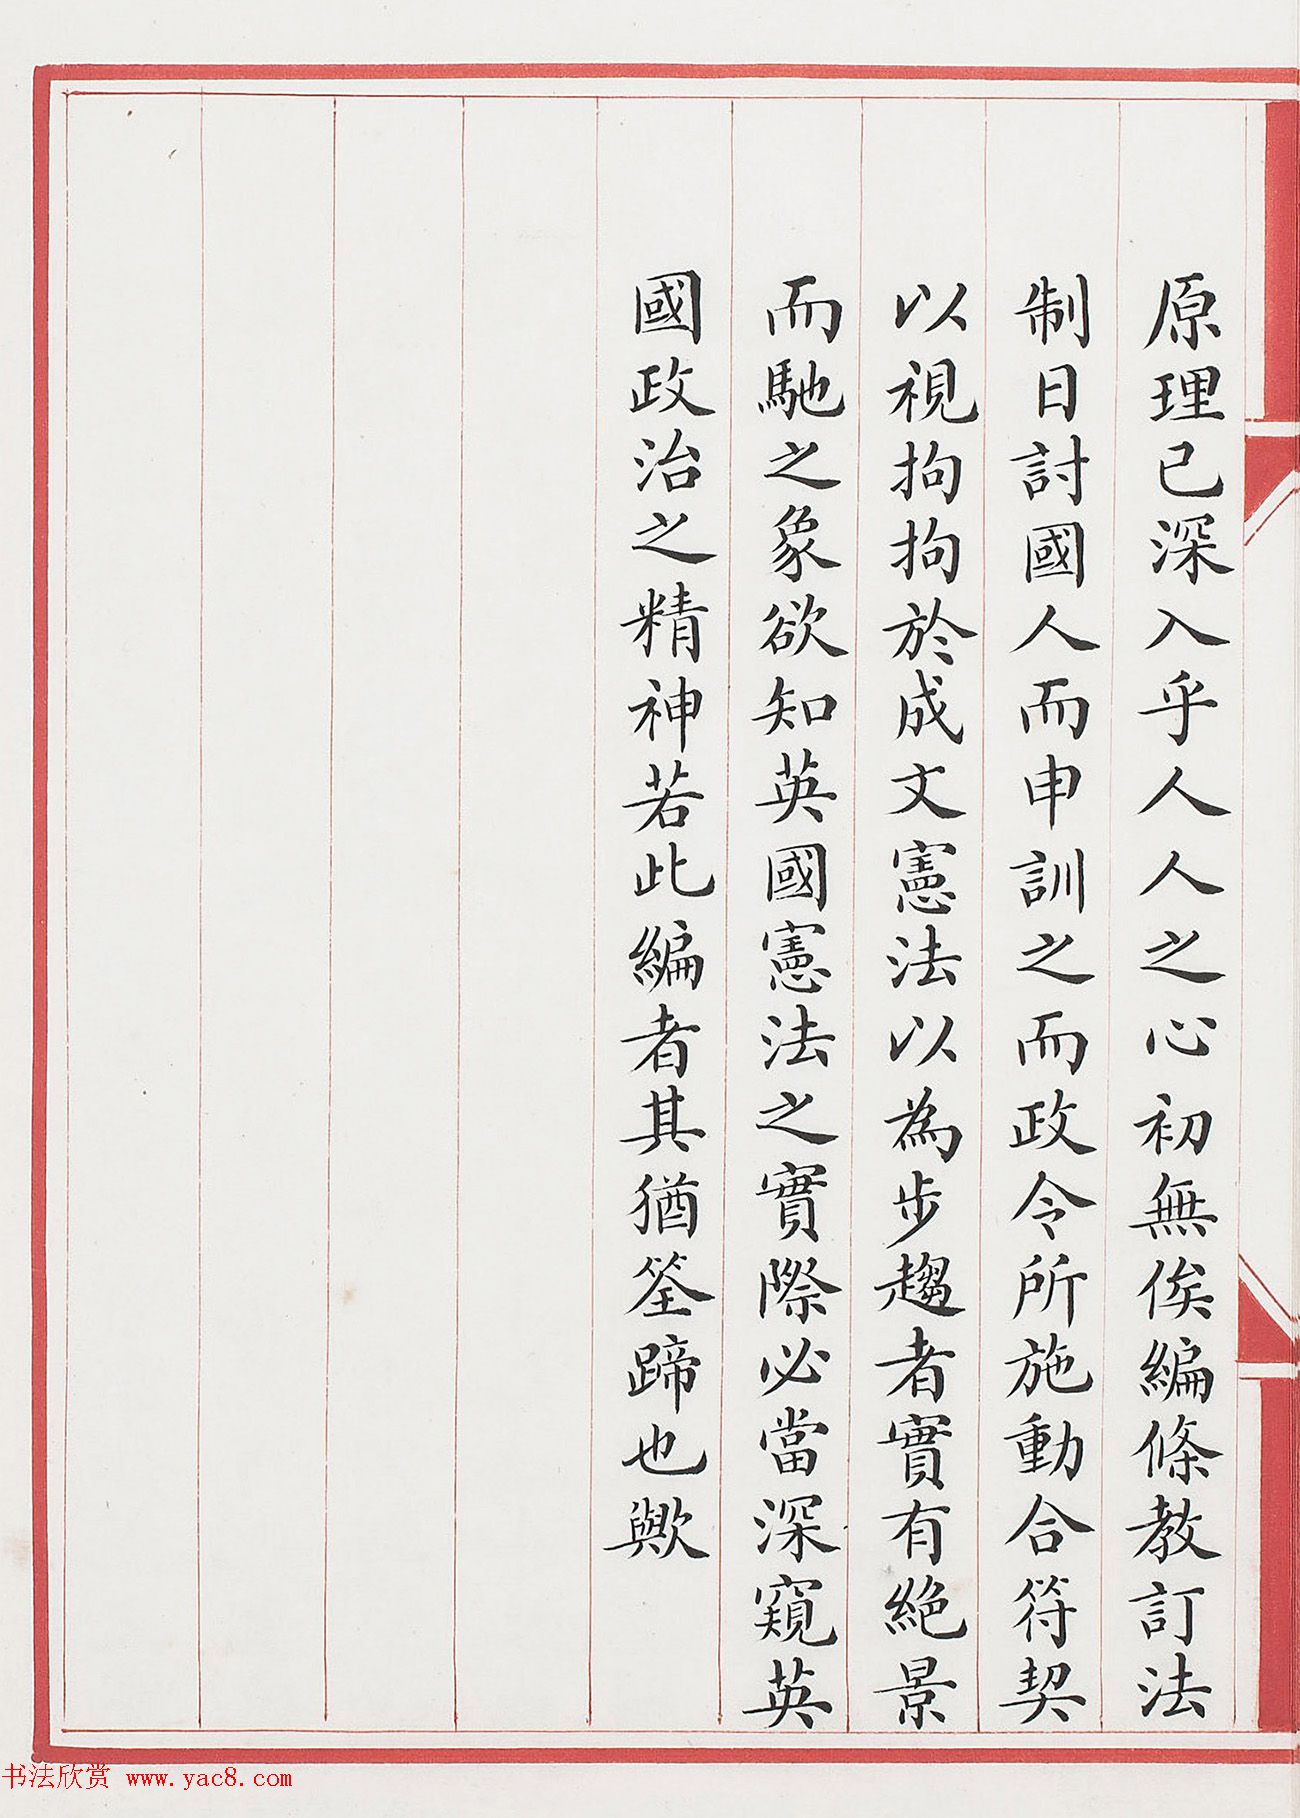 原理已深入乎人人之心初無俟編條教訂法
制日討國人而申訓之而政令所施動合符契
以視拘拘於成文憲法以為步趨者實有絶景
而馳之象欲知英國憲法之實際必當深窺英
國政治之精神若此編者其猶筌蹄也歟
书法欣赏 www.yac8.com